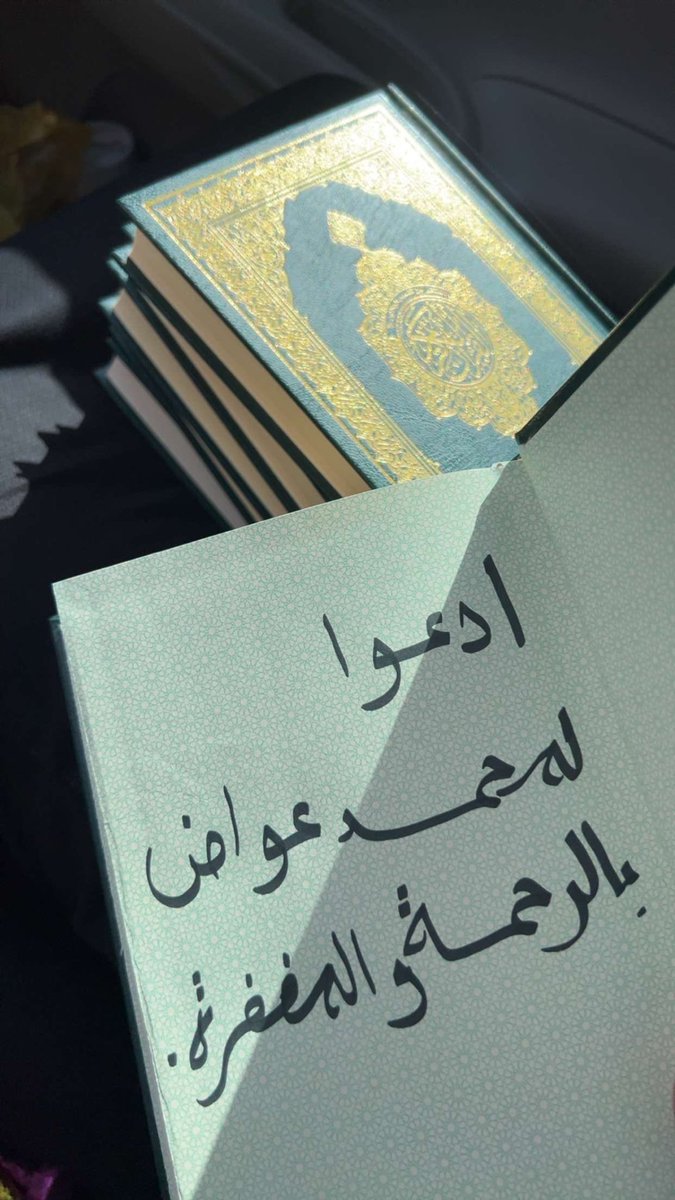 ادعوا
لمحمد عواض
بالرحمة والمغفرة.